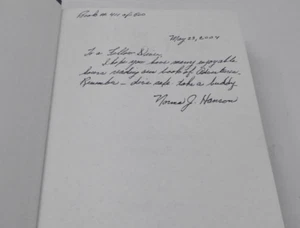 Book # of
May 23, 2004
To a Fellow Diver,
I hope you have many enjoyable
hours reading our book of Adventures.
Remember - dive safe take a buddy
Norma J. Hanson